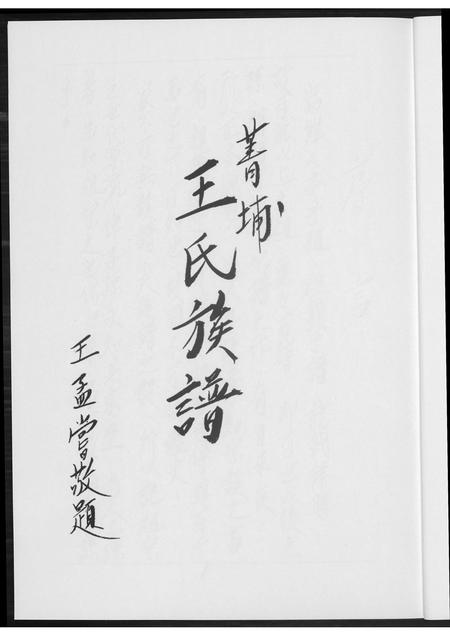 菁埔
王氏族譜
王孟嘗敬題